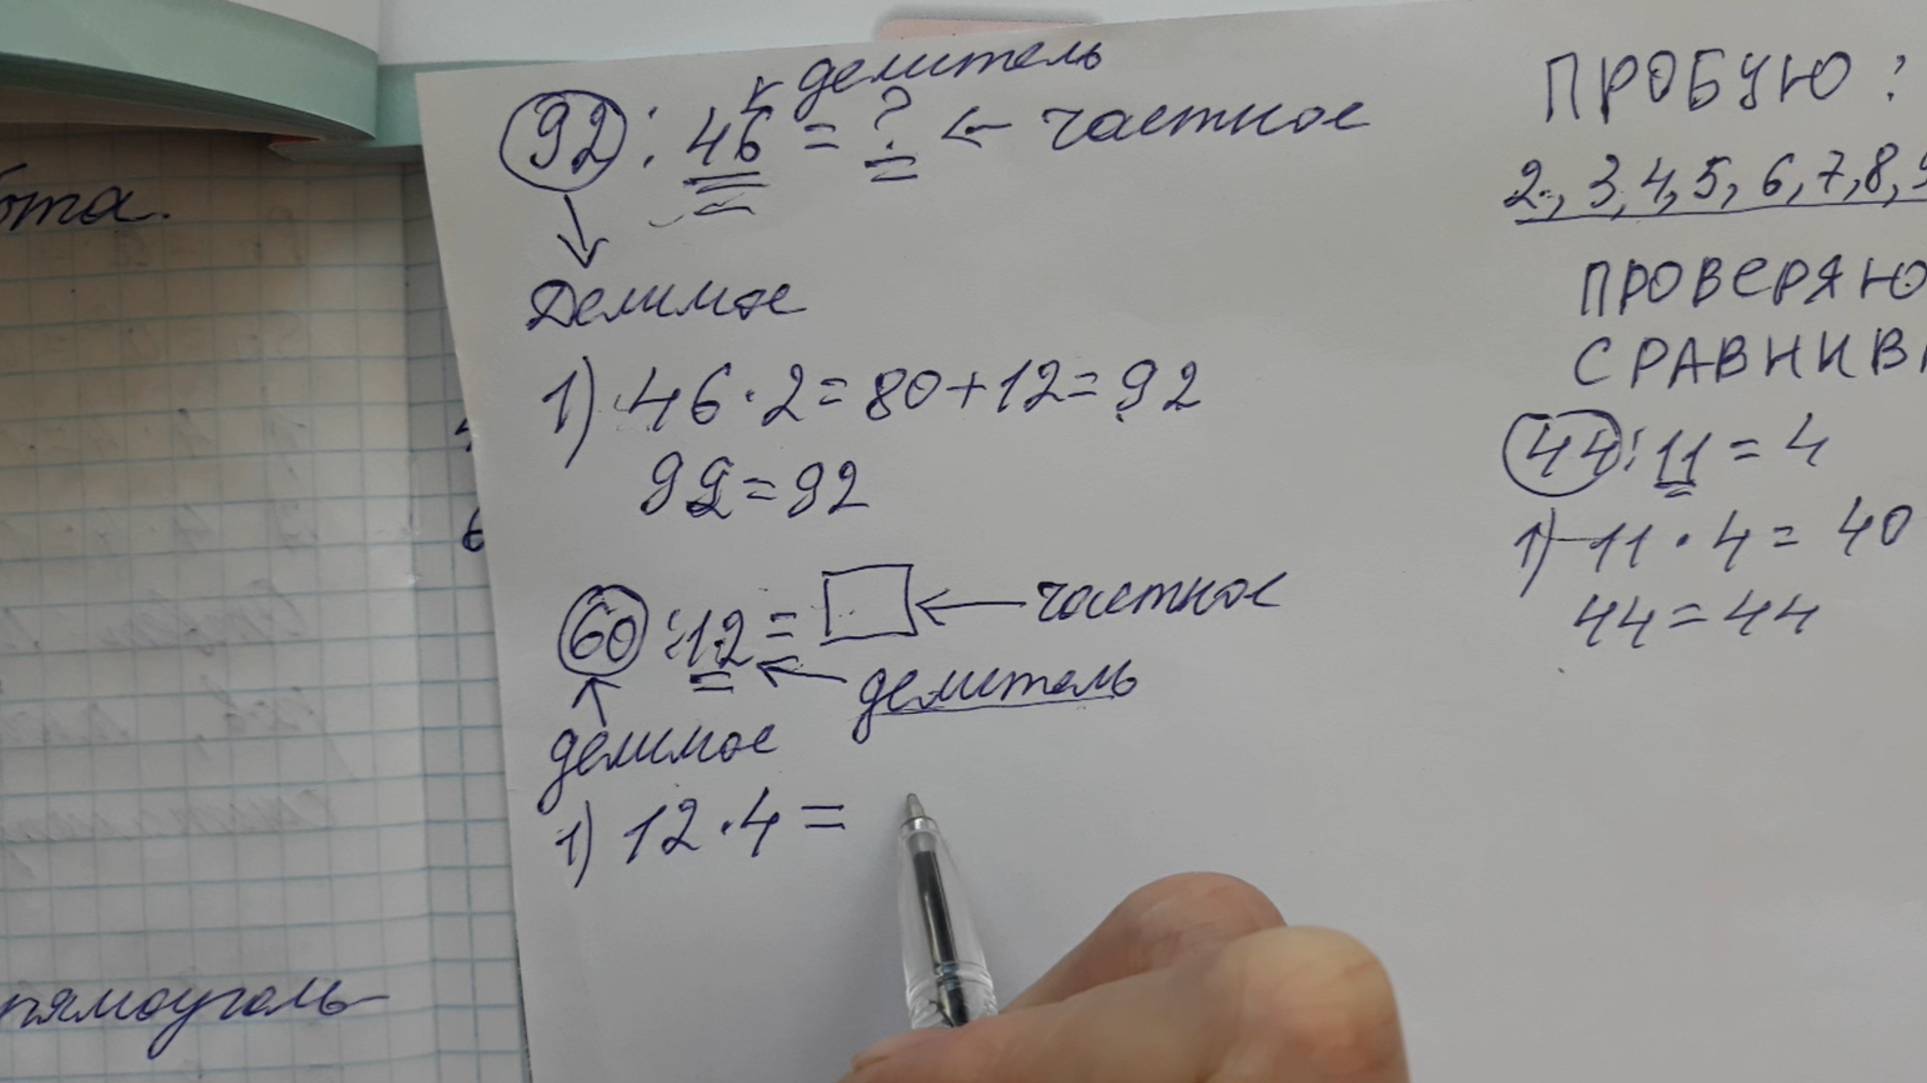 делитель
92 : 46 = ? ← частное
Делимое
1) 46 · 2 = 80 + 12 = 92
92 = 92
60 : 12 = □ ← частное
делитель
делимое
1) 12 · 4 =
ПРОБУЮ :
2, 3, 4, 5, 6, 7, 8, 9
ПРОВЕРЯЮ
СРАВНИВА
44 : 11 = 4
1) 11 · 4 = 40
44 = 44
6
рямоуголь